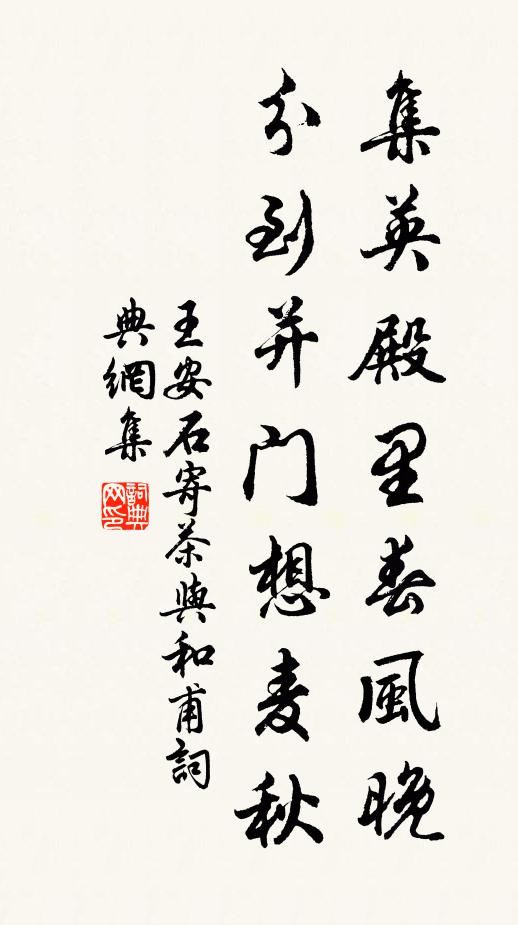 集英殿里春風晚
分到并门想麦秋
王安石寄茶與和甫詞
典網集
詞典网印